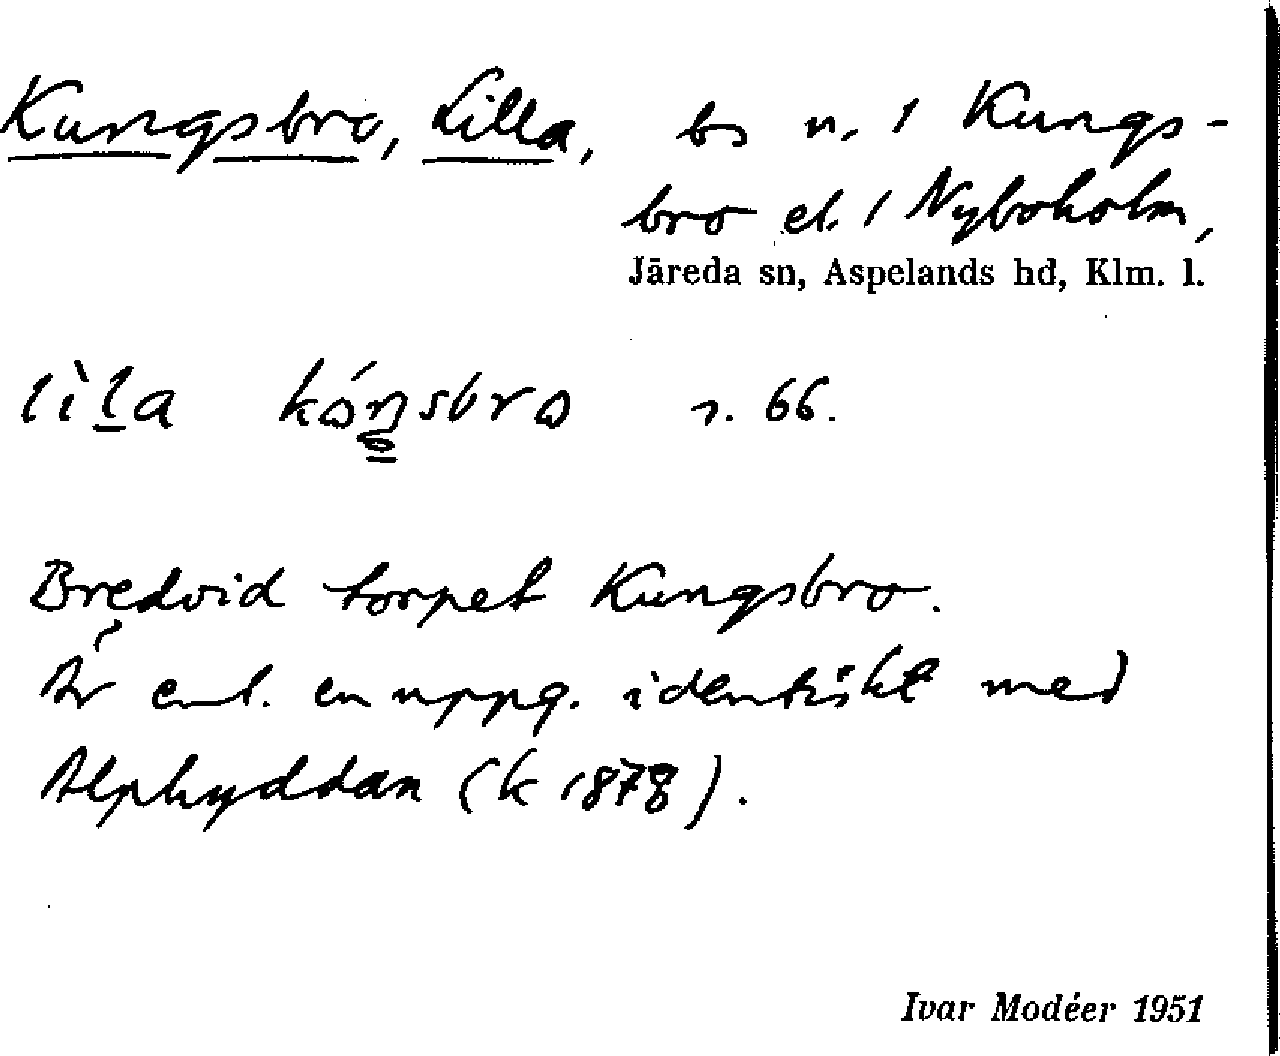 Kungsbro, Lilla, bs u. 1 Kungs-
bro el. 1 Nyboholm,
Järeda sn, Aspelands hd, Klm. l.
lìla kóŋsbro r. 66.
Bredvid torpet Kungsbro.
Är enl. en uppg. identiskt med
Alphyddan (k 1878).
Ivar Modéer 1951